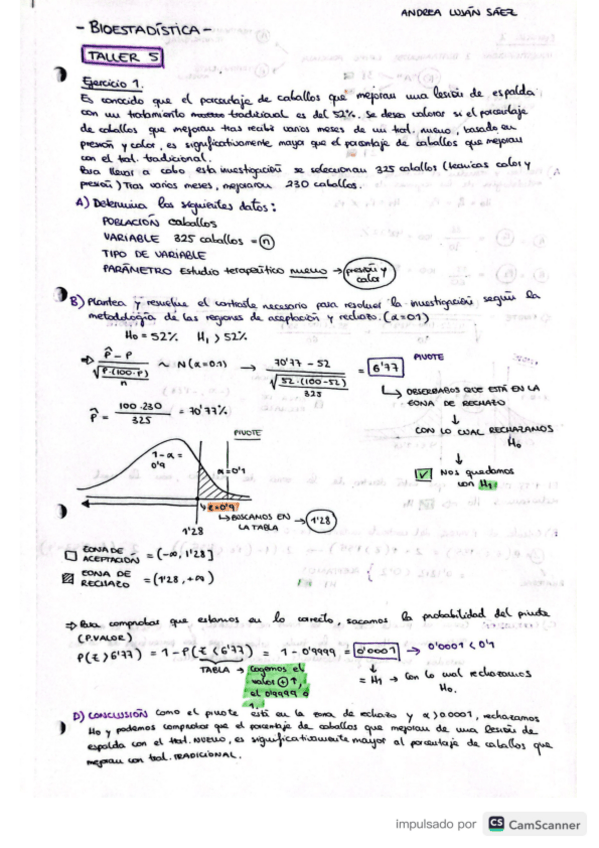 ANDREA LUJÁN SÁEZ
- BIOESTADÍSTICA -
TALLER 5
Ejercicio 1.
Es conocido que el porcentaje de caballos que mejoran una lesión de espalda
con un tratamiento tradicional es del 52%. Se desea valorar si el porcentaje
de caballos que mejoran tras recibir varios meses de un trat. nuevo, basado en
presión y calor, es significativamente mayor que el porcentaje de caballos que mejoran
con el trat. tradicional.
Para llevar a cabo esta investigación se seleccionan 325 caballos (técnicas calor y
presión) Tras varios meses, mejoraron 230 caballos.
A) Determina los siguientes datos:
POBLACIÓN caballos
VARIABLE 325 caballos = n
TIPO DE VARIABLE
PARÁMETRO Estudio terapeútico nuevo → presión y calor
B) Plantea y resuelve el contraste necesario para resolver la investigación según la
metodología de las regiones de aceptación y rechazo. (α=0.1)
H₀ = 52% H₁ > 52%
⇒ p̂ - p / √(p·(100-p)/n) ~ N(α=0.1) → 70'77 - 52 / √(52·(100-52)/325) = 6'77 PIVOTE
p̂ = 100·230 / 325 = 70'77%
↳ OBSERVABOS QUE ESTÁ EN LA
ZONA DE RECHAZO
↓
CON LO CUAL RECHAZAMOS
H₀
↓
☑ Nos quedamos
con H₁
PIVOTE
1-α =
0'9
α=0'1
z=0'9
1'28
↳ BUSCAMOS EN
LA TABLA → 1'28
ZONA DE
ACEPTACIÓN = (-∞, 1'28)
ZONA DE
RECHAZO = (1'28, +∞)
⇒ Para comprobar que estamos en lo correcto, sacamos la probabilidad del pivote
(P.VALOR)
P(Z > 6'77) = 1 - P(Z < 6'77) = 1 - 0'9999 = 0'0001 → 0'0001 < 0'1
TABLA → Cogemos el
valor + ↑,
el 0'9999 o
1.
↓
= H₁ → Con lo cual rechazamos
H₀.
D) CONCLUSIÓN como el pivote está en la zona de rechazo y α > 0.0001, rechazamos
H₀ y podemos comprobar que el porcentaje de caballos que mejoran de una lesión de
espalda con el trat. NUEVO, es significativamente mayor al porcentaje de caballos que
mejoran con trat. TRADICIONAL.
impulsado por CS CamScanner